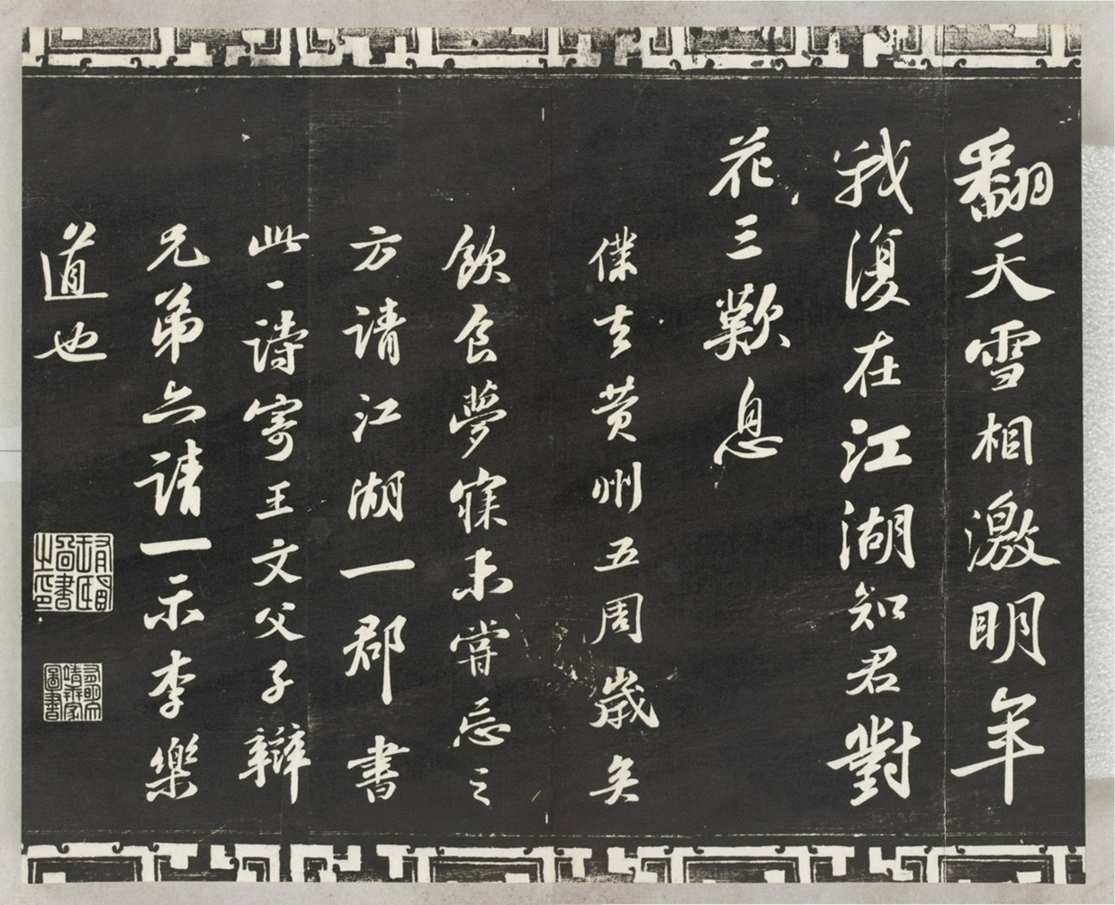 翻天雪相激明年
我復在江湖知君對
花三歎息
僕去黄州五周歲矣
飲食夢寐未嘗忘之
方請江湖一郡書
此一詩寄王文父子辯
兄弟亦請一示李樂
道也